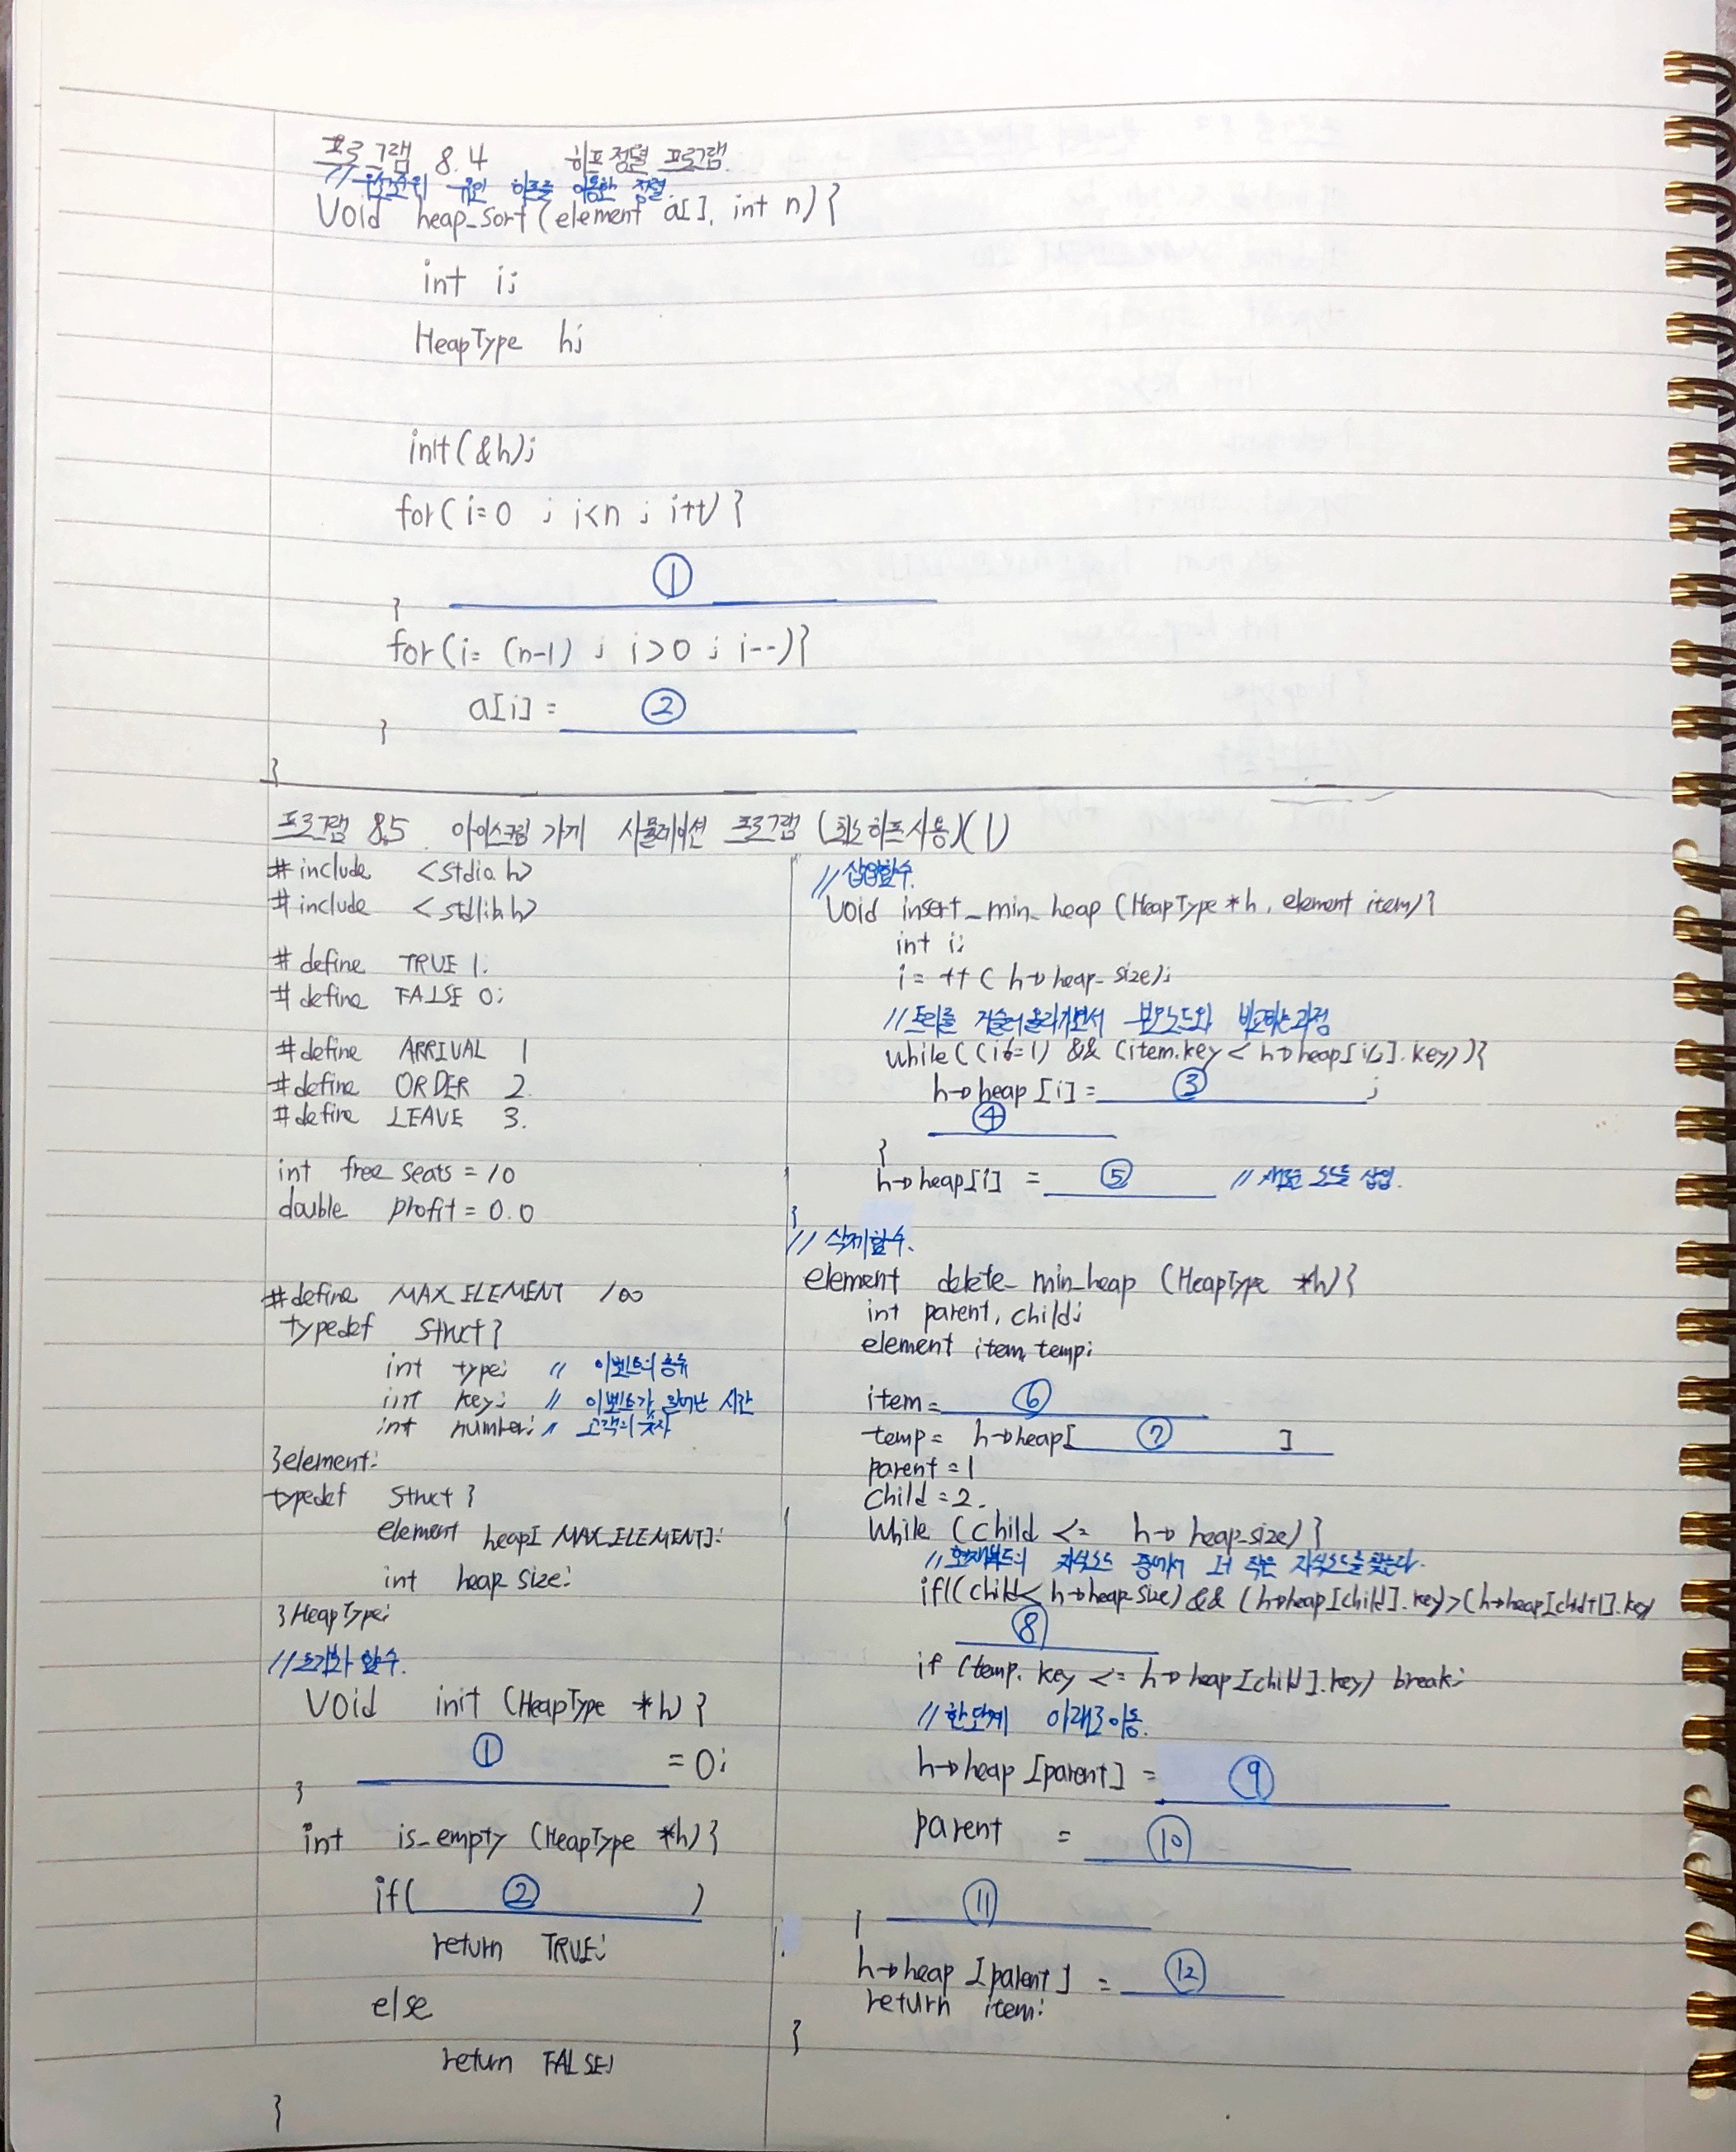 프로그램 8.4 히프 정렬 프로그램.
// 우선순위 큐인 히프를 이용한 정렬.
Void heap_sort(element a[], int n){
int i;
HeapType h;
init(&h);
for(i=0 ; i<n ; i++){
①
}
for(i= (n-1) ; i>0 ; i--){
a[i] = ②
}
}
프로그램 8.5 아이스크림 가게 시뮬레이션 프로그램 (최소히프사용)(1)
# include <stdio.h>
# include <stdlib.h>
# define TRUE 1.
# define FALSE 0;
# define ARRIVAL 1
# define ORDER 2.
# define LEAVE 3.
int free_seats = 10
double profit = 0.0
# define MAX_ELEMENT 100
typedef struct{
int type; // 이벤트의 종류
int key; // 이벤트가 일어난 시간
int number; // 고객의 숫자
}element;
typedef struct {
element heap[ MAX_ELEMENT];
int heap_size;
}HeapType;
//초기화 함수.
Void init (HeapType *h){
① = 0;
}
int is_empty (HeapType *h){
if( ② )
return TRUE;
else
return FALSE;
}
// 삽입함수.
Void insert_min_heap (HeapType *h, element item){
int i;
i = ++ ( h→heap_size);
//트리를 거슬러 올라가면서 부모노드와 비교하는과정
while( (i != 1) && (item.key < h→heap[i/2].key)){
h→heap [i] = ③ ;
④
}
h→heap[i] = ⑤ // 새로운 노드를 삽입.
}
// 삭제함수.
element delete_min_heap (HeapType *h){
int parent, child;
element item, temp;
item= ⑥
temp= h→heap[ ⑦ ]
parent = 1
child = 2.
While (child <= h→heap_size){
//현재노드의 자식노드 중에서 더 작은 자식노드를 찾는다.
if((child< h→heap_size) && (h→heap[child].key)>(h→heap[child+1].key
⑧
if (temp.key <= h→heap[child].key) break;
// 한단계 아래로이동.
h→heap [parent] = ⑨
parent = ⑩
⑪
}
h→heap [parent] = ⑫
return item;
}